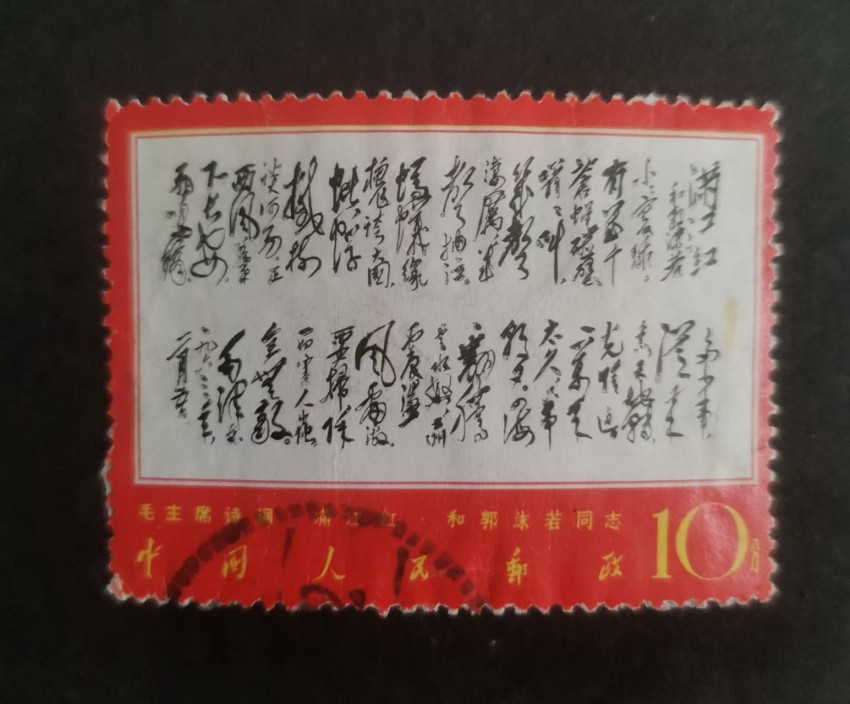 满江红
和郭沫若
小小寰球,
有几个
苍蝇碰壁。
嗡嗡叫,
几声
凄厉,几
声抽泣。
蚂蚁缘
槐夸大国,
蚍蜉
撼树
谈何易。正
西风落叶
下长安,
飞鸣镝。
多少事,
从来
急,天地转,
光阴迫。
一万年
太久,只争
朝夕。四海
翻腾
云水怒,五洲
震荡
风雷激。
要扫除
一切害人虫,
全无敌。
毛泽东
一九六三年
二月五日
毛主席诗词 满江红 和郭沫若同志
中国人民邮政 10分